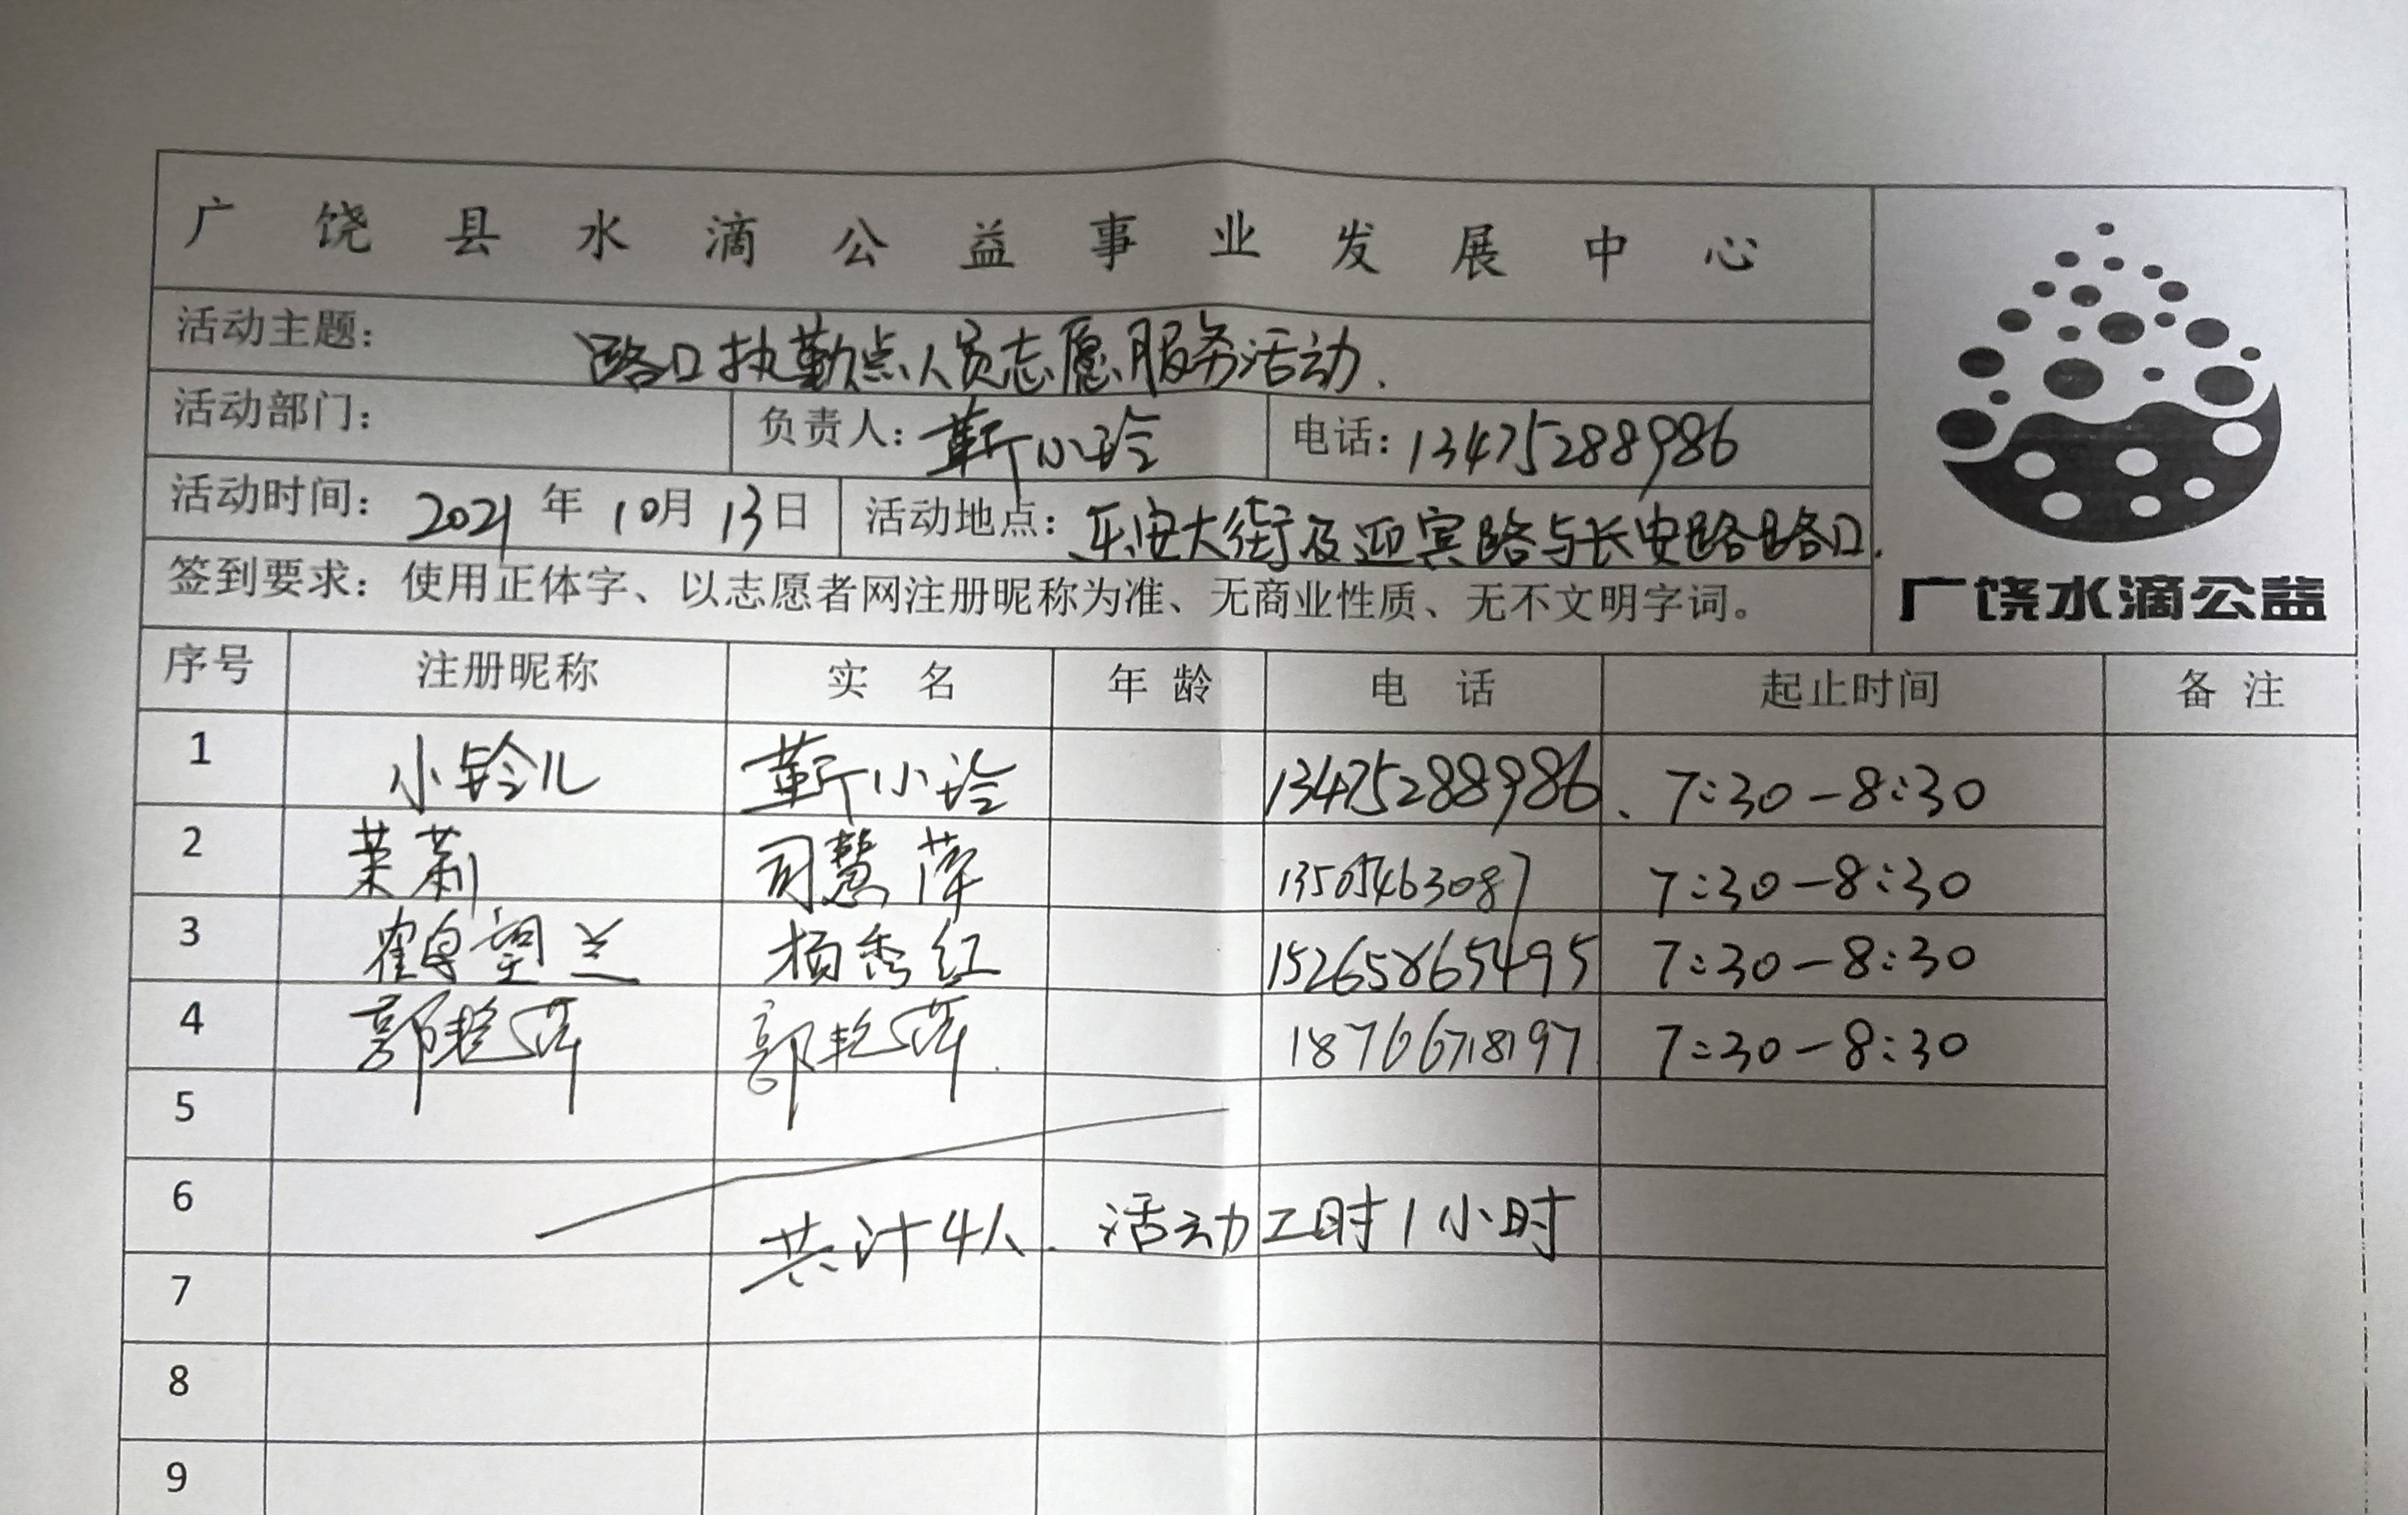 广饶县水滴公益事业发展中心
活动主题： 路口执勤点人员志愿服务活动.
活动部门： 负责人：靳小玲 电话：13475288986
活动时间：2021年10月13日 活动地点：乐安大街及迎宾路与长安路路口.
签到要求：使用正体字、以志愿者网注册昵称为准、无商业性质、无不文明字词。
广饶水滴公益
序号 注册昵称 实名 年龄 电话 起止时间 备注
1 小铃儿 靳小玲 13475288986. 7:30-8:30
2 茉莉 司慧萍 13505463087 7:30-8:30
3 鹤望兰 杨秀红 15265865495 7:30-8:30
4 郭艳萍 郭艳萍. 18766718197 7:30-8:30
5
6 共计4人. 活动工时1小时
7
8
9